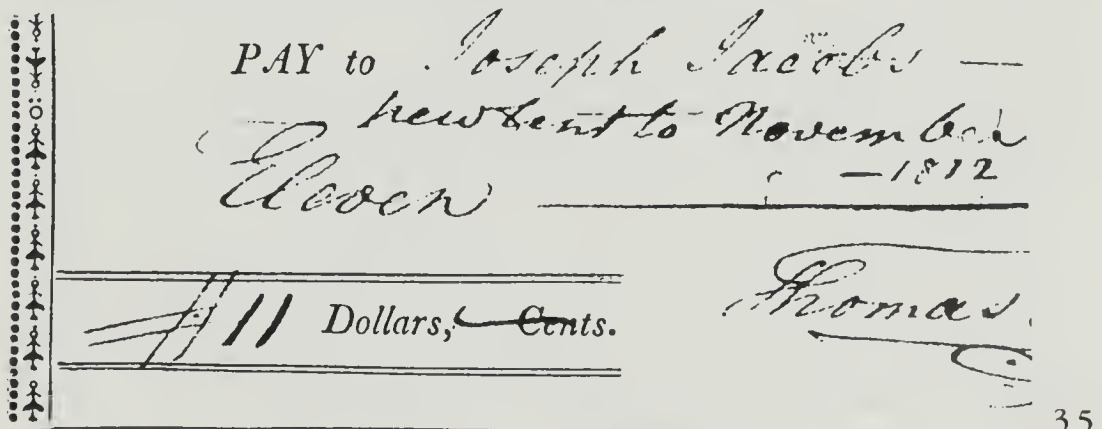 PAY to Joseph Jacobs —
pew Rent to November
— 1812
Eleven
# 11 Dollars, Cents.
Thomas
35